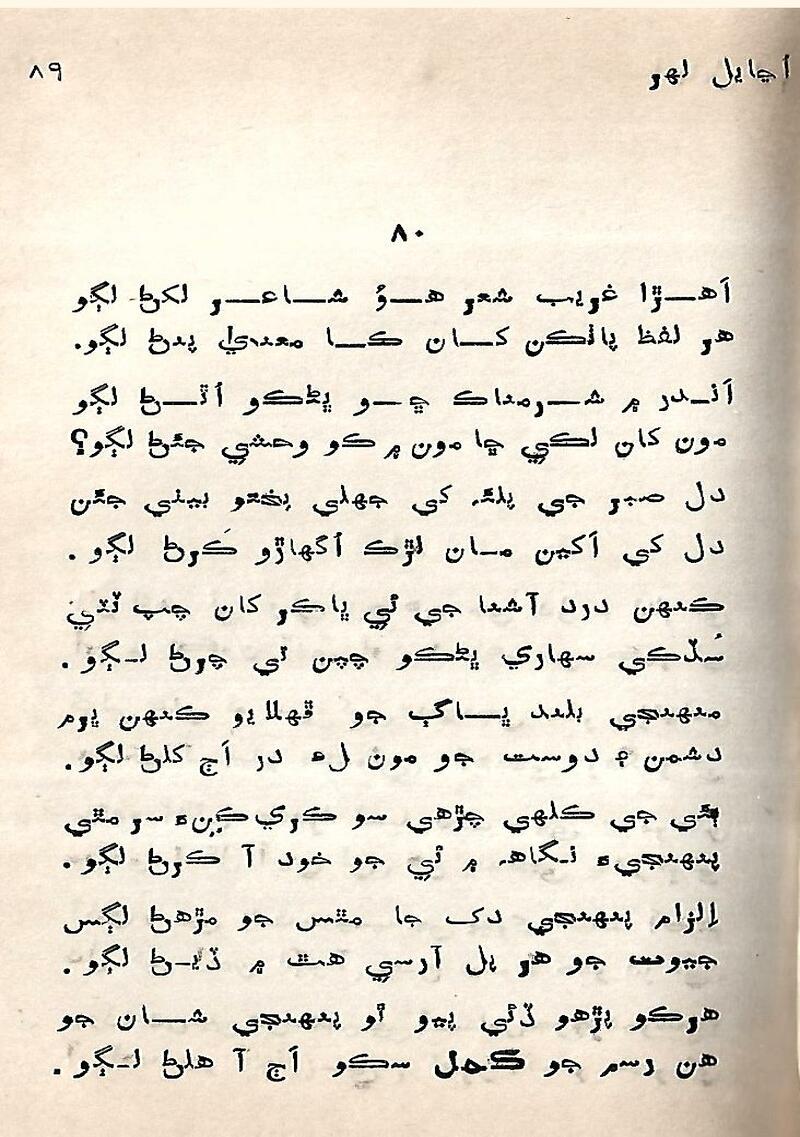 اڃايل لهر
٨٩
٨٠
اَهــڙا غريب شعر هــوُ شــاعــر لکڻ لڳو
هر لفظ پاڻکن کــان کــا معنيٰ پڇڻ لڳو.
اَنــدر ۾ شــرمناڪ ڇــو ڀڻڪو اُٿــڻ لڳو
مون کان لڪي ڇا مون ۾ ڪو وحشي جئڻ لڳو؟
دل صبر جي پلئہ کي جهلي پختو بيٺي جئن
دل کي اَکين مــان لڙڪ اُگهاڙو ڪَرڻ لڳو.
ڪنهن درد آشنا جي ئي ڀاڪر کان چپ ٽٽي
سُڏڪي سهاري ڀڻڪو چپن ئي چرڻ لــڳو.
منهنجي بلند ڀــاڳ جو ڦهلايو ڪنهن ڀرم
دشمن ۽ دوست جو مون لاءِ در اَڄ کلڻ لڳو.
ٻئي جي ڪلهي چڙهي سو ڪري ڪيئن سر مٿي
پنهنجيءَ نــگاهہ ۾ ئي جو خود آ ڪرڻ لڳو.
اِلزام پنهنجي دک جا مٿس جو مڙهڻ لڳس
جيوت جو هر پل آرسي هٿ ۾ ڏيــڻ لڳو.
هرڪو پڙهو ڏئي پيو ٿو پنهنجي شــان جو
هن رسم جو کـهـل سڪو اَڄ آ هلڻ لــڳو.